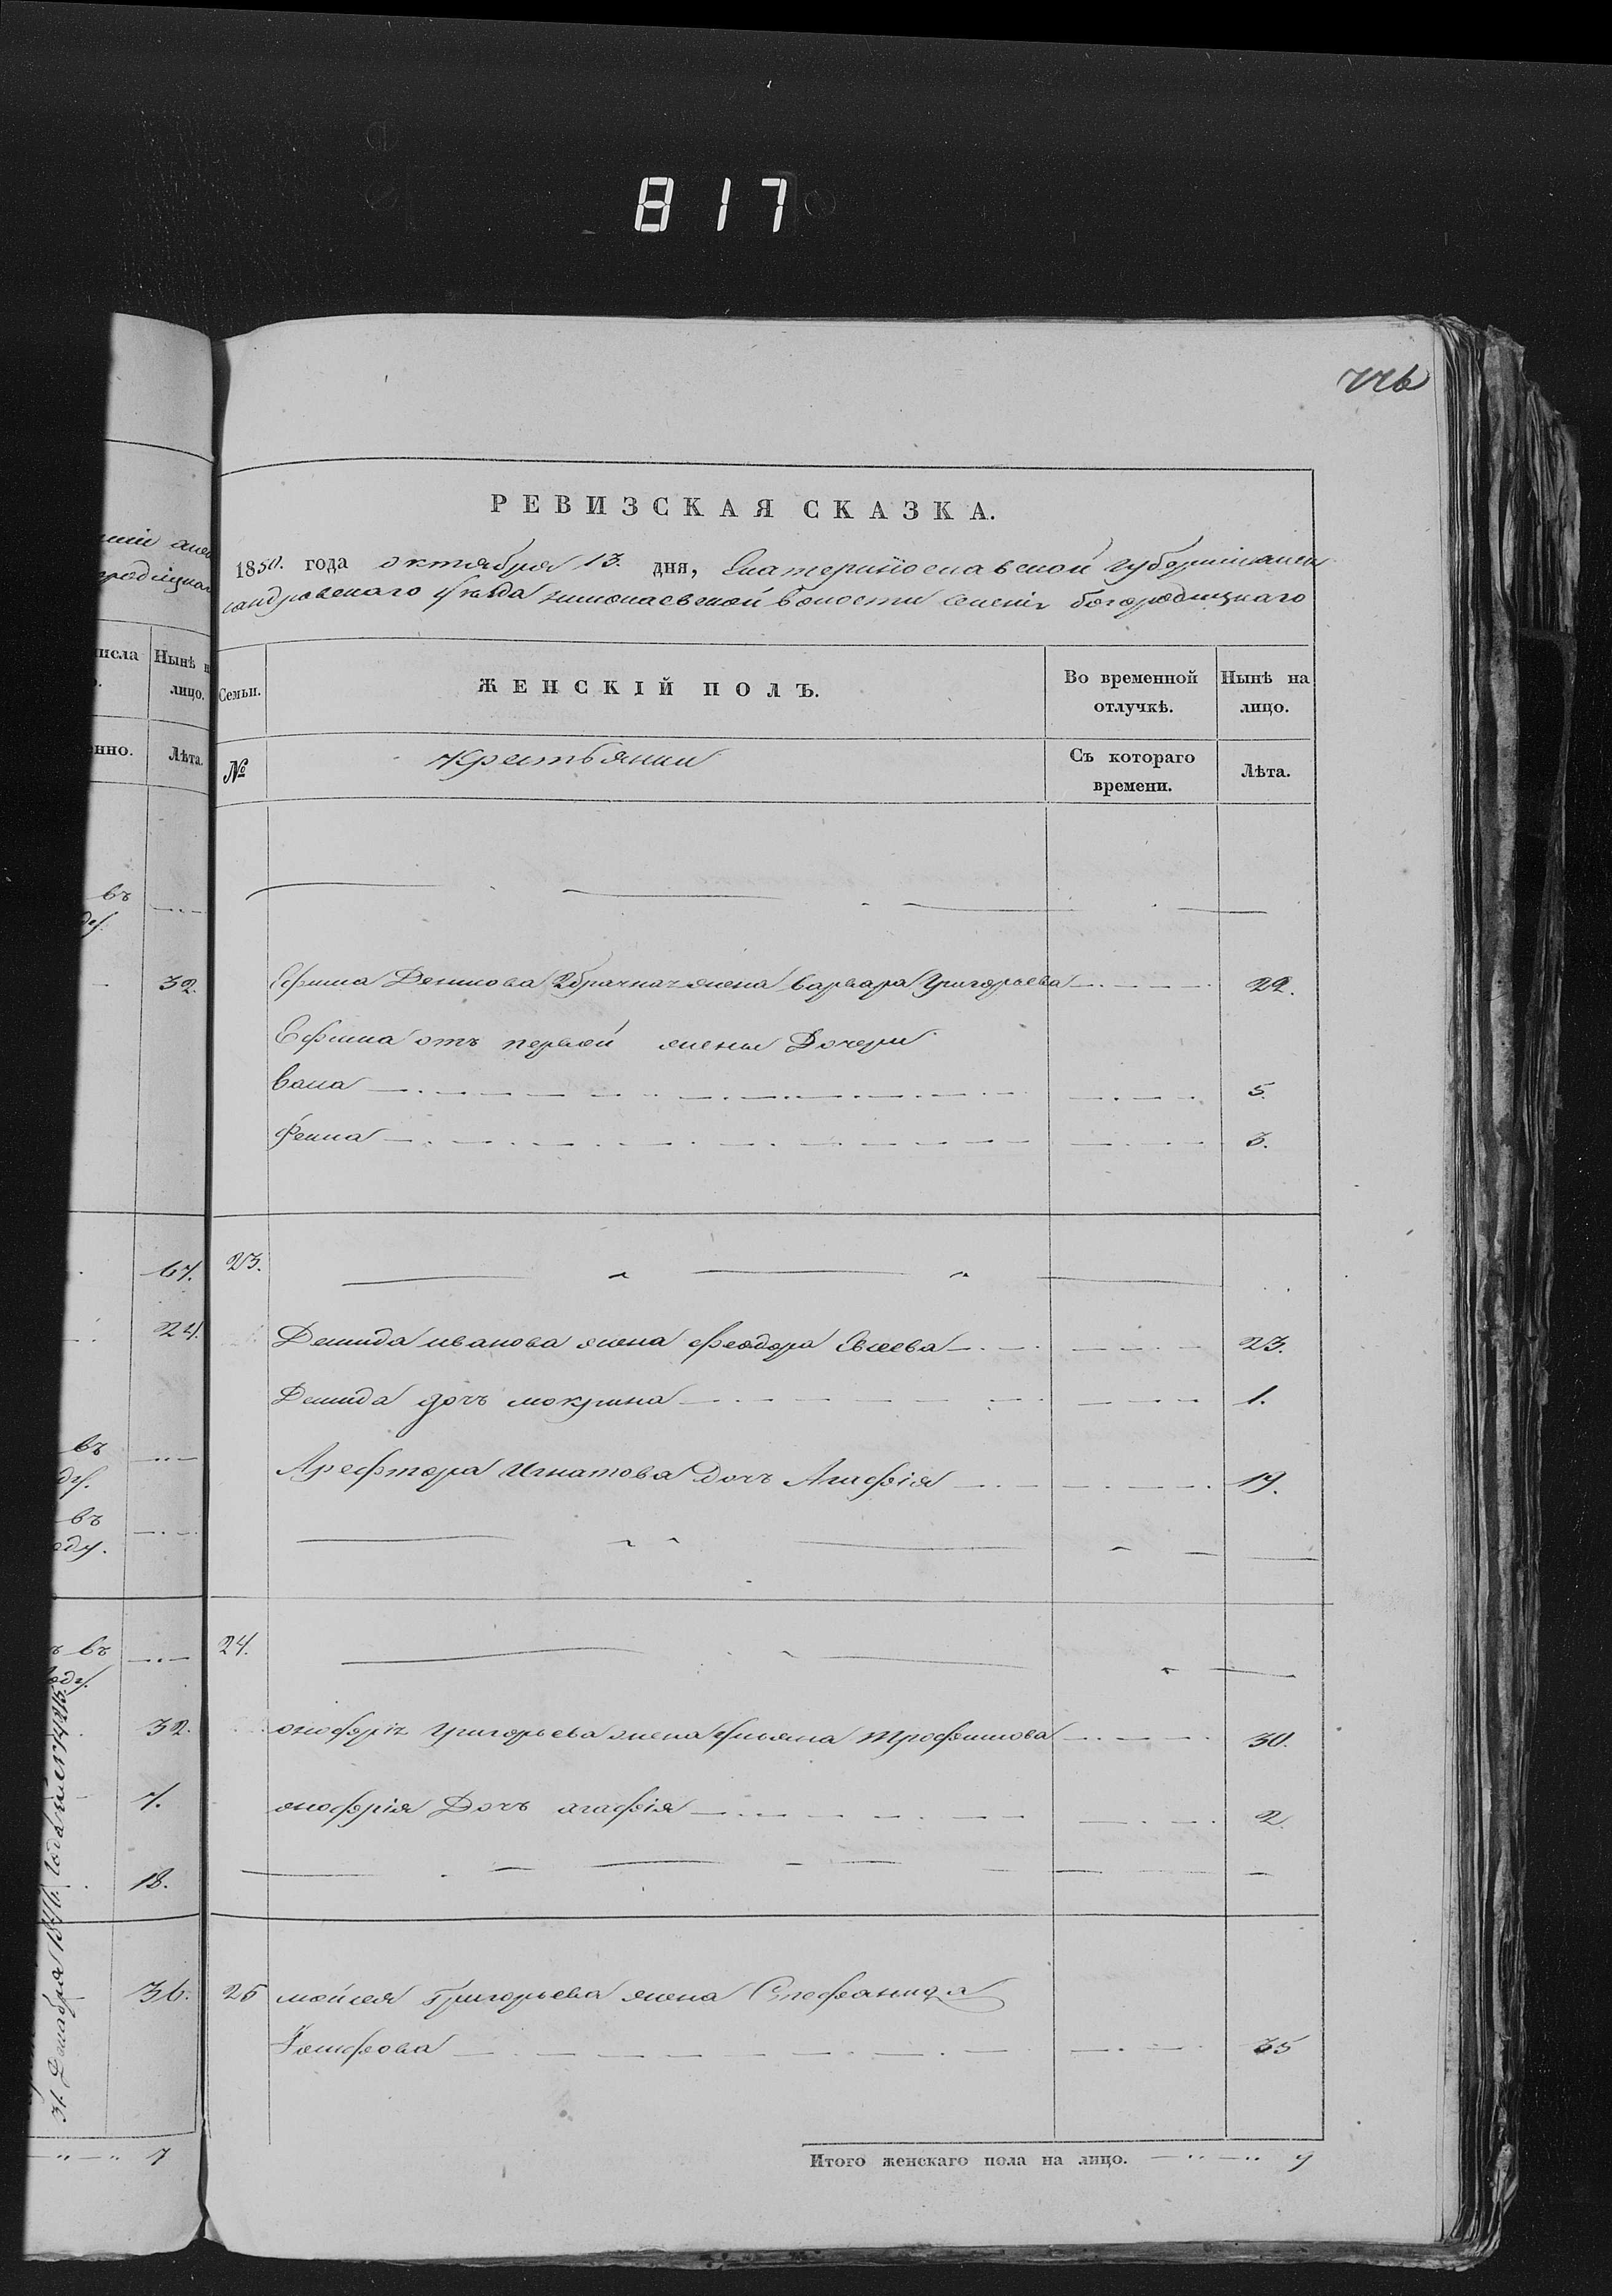 817
776
РЕВИЗСКАЯ СКАЗКА.
1850. года октября 13. дня, Екатеринославской губерніи алек
сандровскаго уѣзда николаевской волости селенія богородицкаго
Семьи.
ЖЕНСКІЙ ПОЛЪ.
Во временной отлучкѣ.
Нынѣ на лицо.
№
Крестьянки
Съ котораго времени.
Лѣта.
Ефима Денисова 2брачная жена варвара Григорьева 22.
Ефима отъ первой жены Дочери
5.
3.
23.
Демида иванова жена феодора Евсеева 23.
Демида дочь мокрина 1.
Игнатова Дочь Агафія 19.
24.
онофрія Григорьева жена ульяна Трофимова 30.
онофрія Дочь агафія 2.
25 мойсея Григорьева жена Стефанида
Іосифова 35
Итого женскаго пола на лицо. 9
числа
Нынѣ на
лицо.
Лѣта.
въ
32.
67.
24.
въ
въ
въ
32.
7.
18.
36.
31. Декабря
7